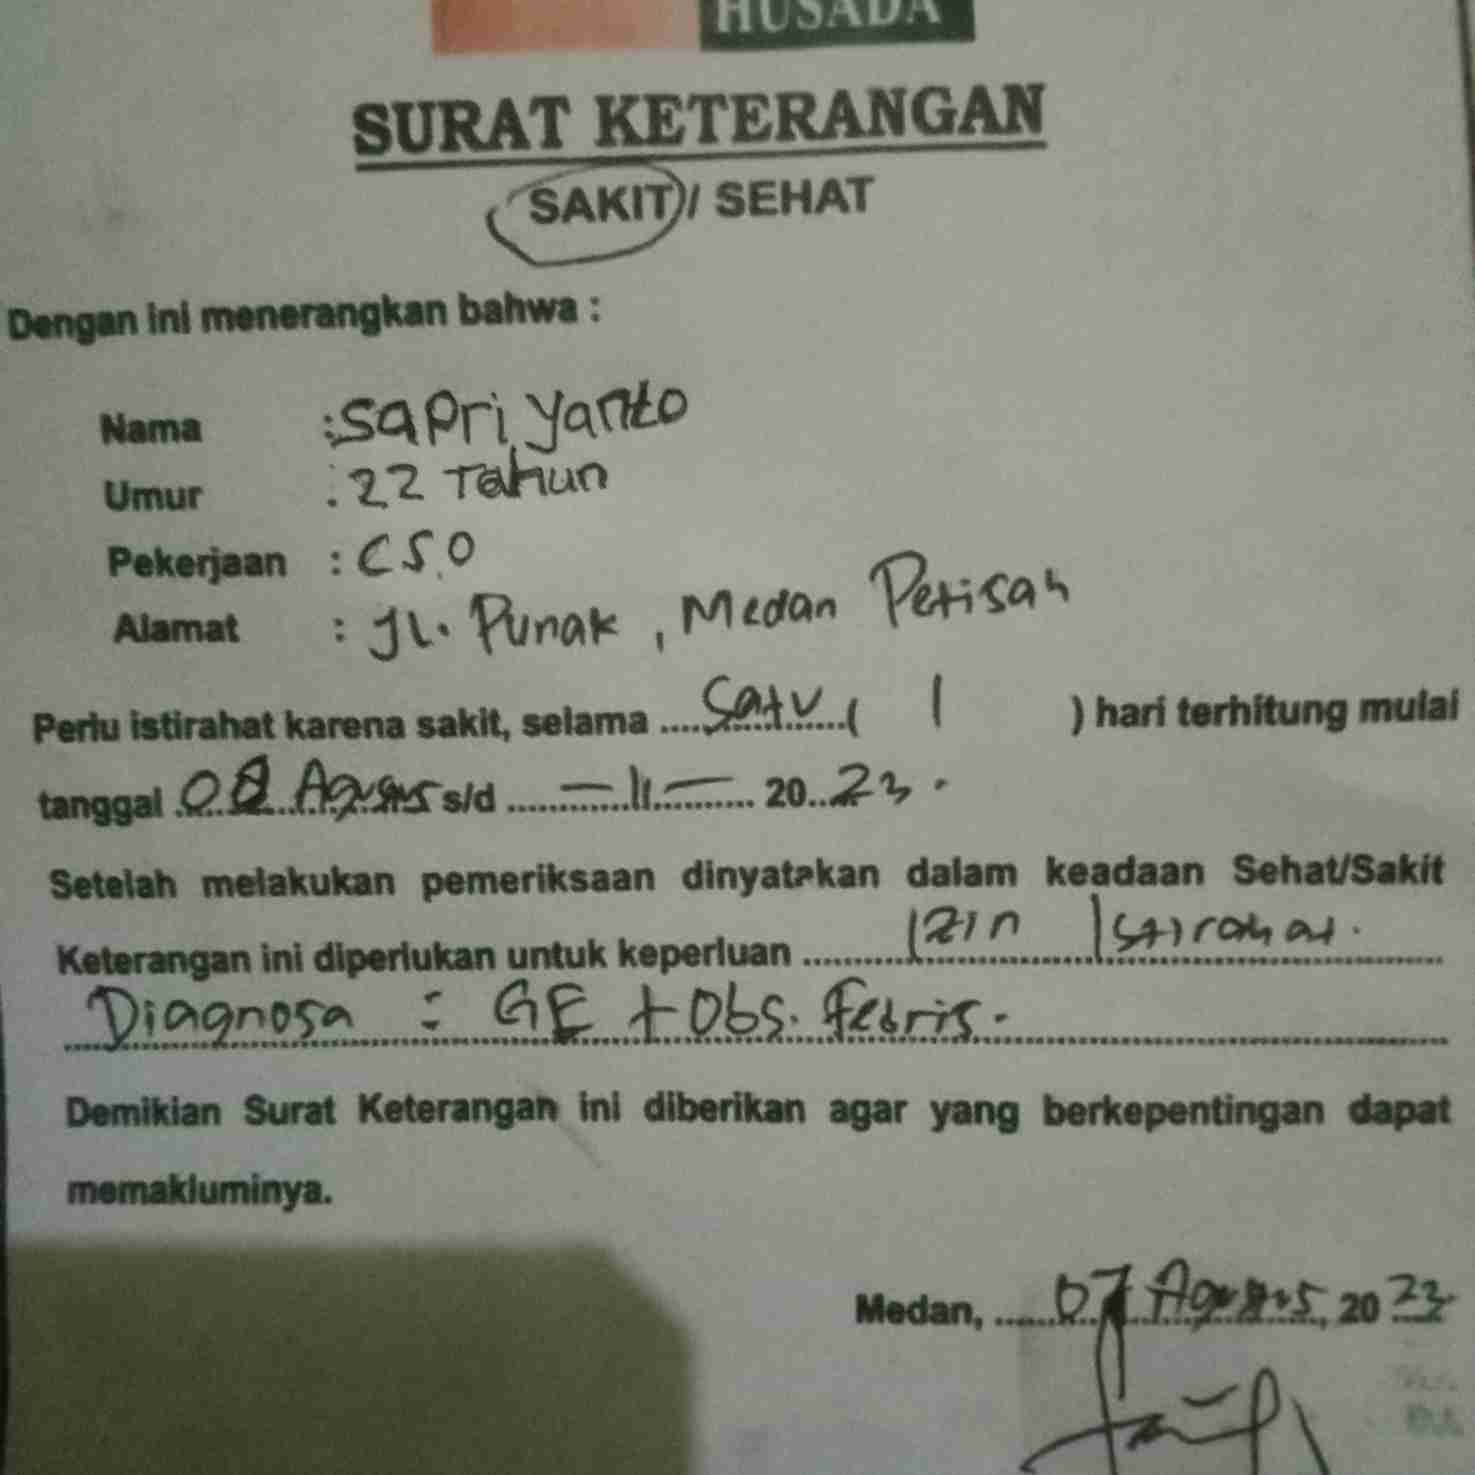 HUSADA
SURAT KETERANGAN
SAKIT / SEHAT
Dengan ini menerangkan bahwa :
Nama : Sapri Yanto
Umur : 22 Tahun
Pekerjaan : CSO
Alamat : Jl. Punak, Medan Petisah
Perlu istirahat karena sakit, selama ..... Satu ..... ( 1 ) hari terhitung mulai
tanggal 08 Agustus s/d ..... — 11 — ..... 20..23.
Setelah melakukan pemeriksaan dinyatakan dalam keadaan Sehat/Sakit
Keterangan ini diperlukan untuk keperluan ..... Izin Istirahat.
Diagnosa : GE + Obs. Febris.
Demikian Surat Keterangan ini diberikan agar yang berkepentingan dapat
memakluminya.
Medan, ..... 07 Agustus, 20 23